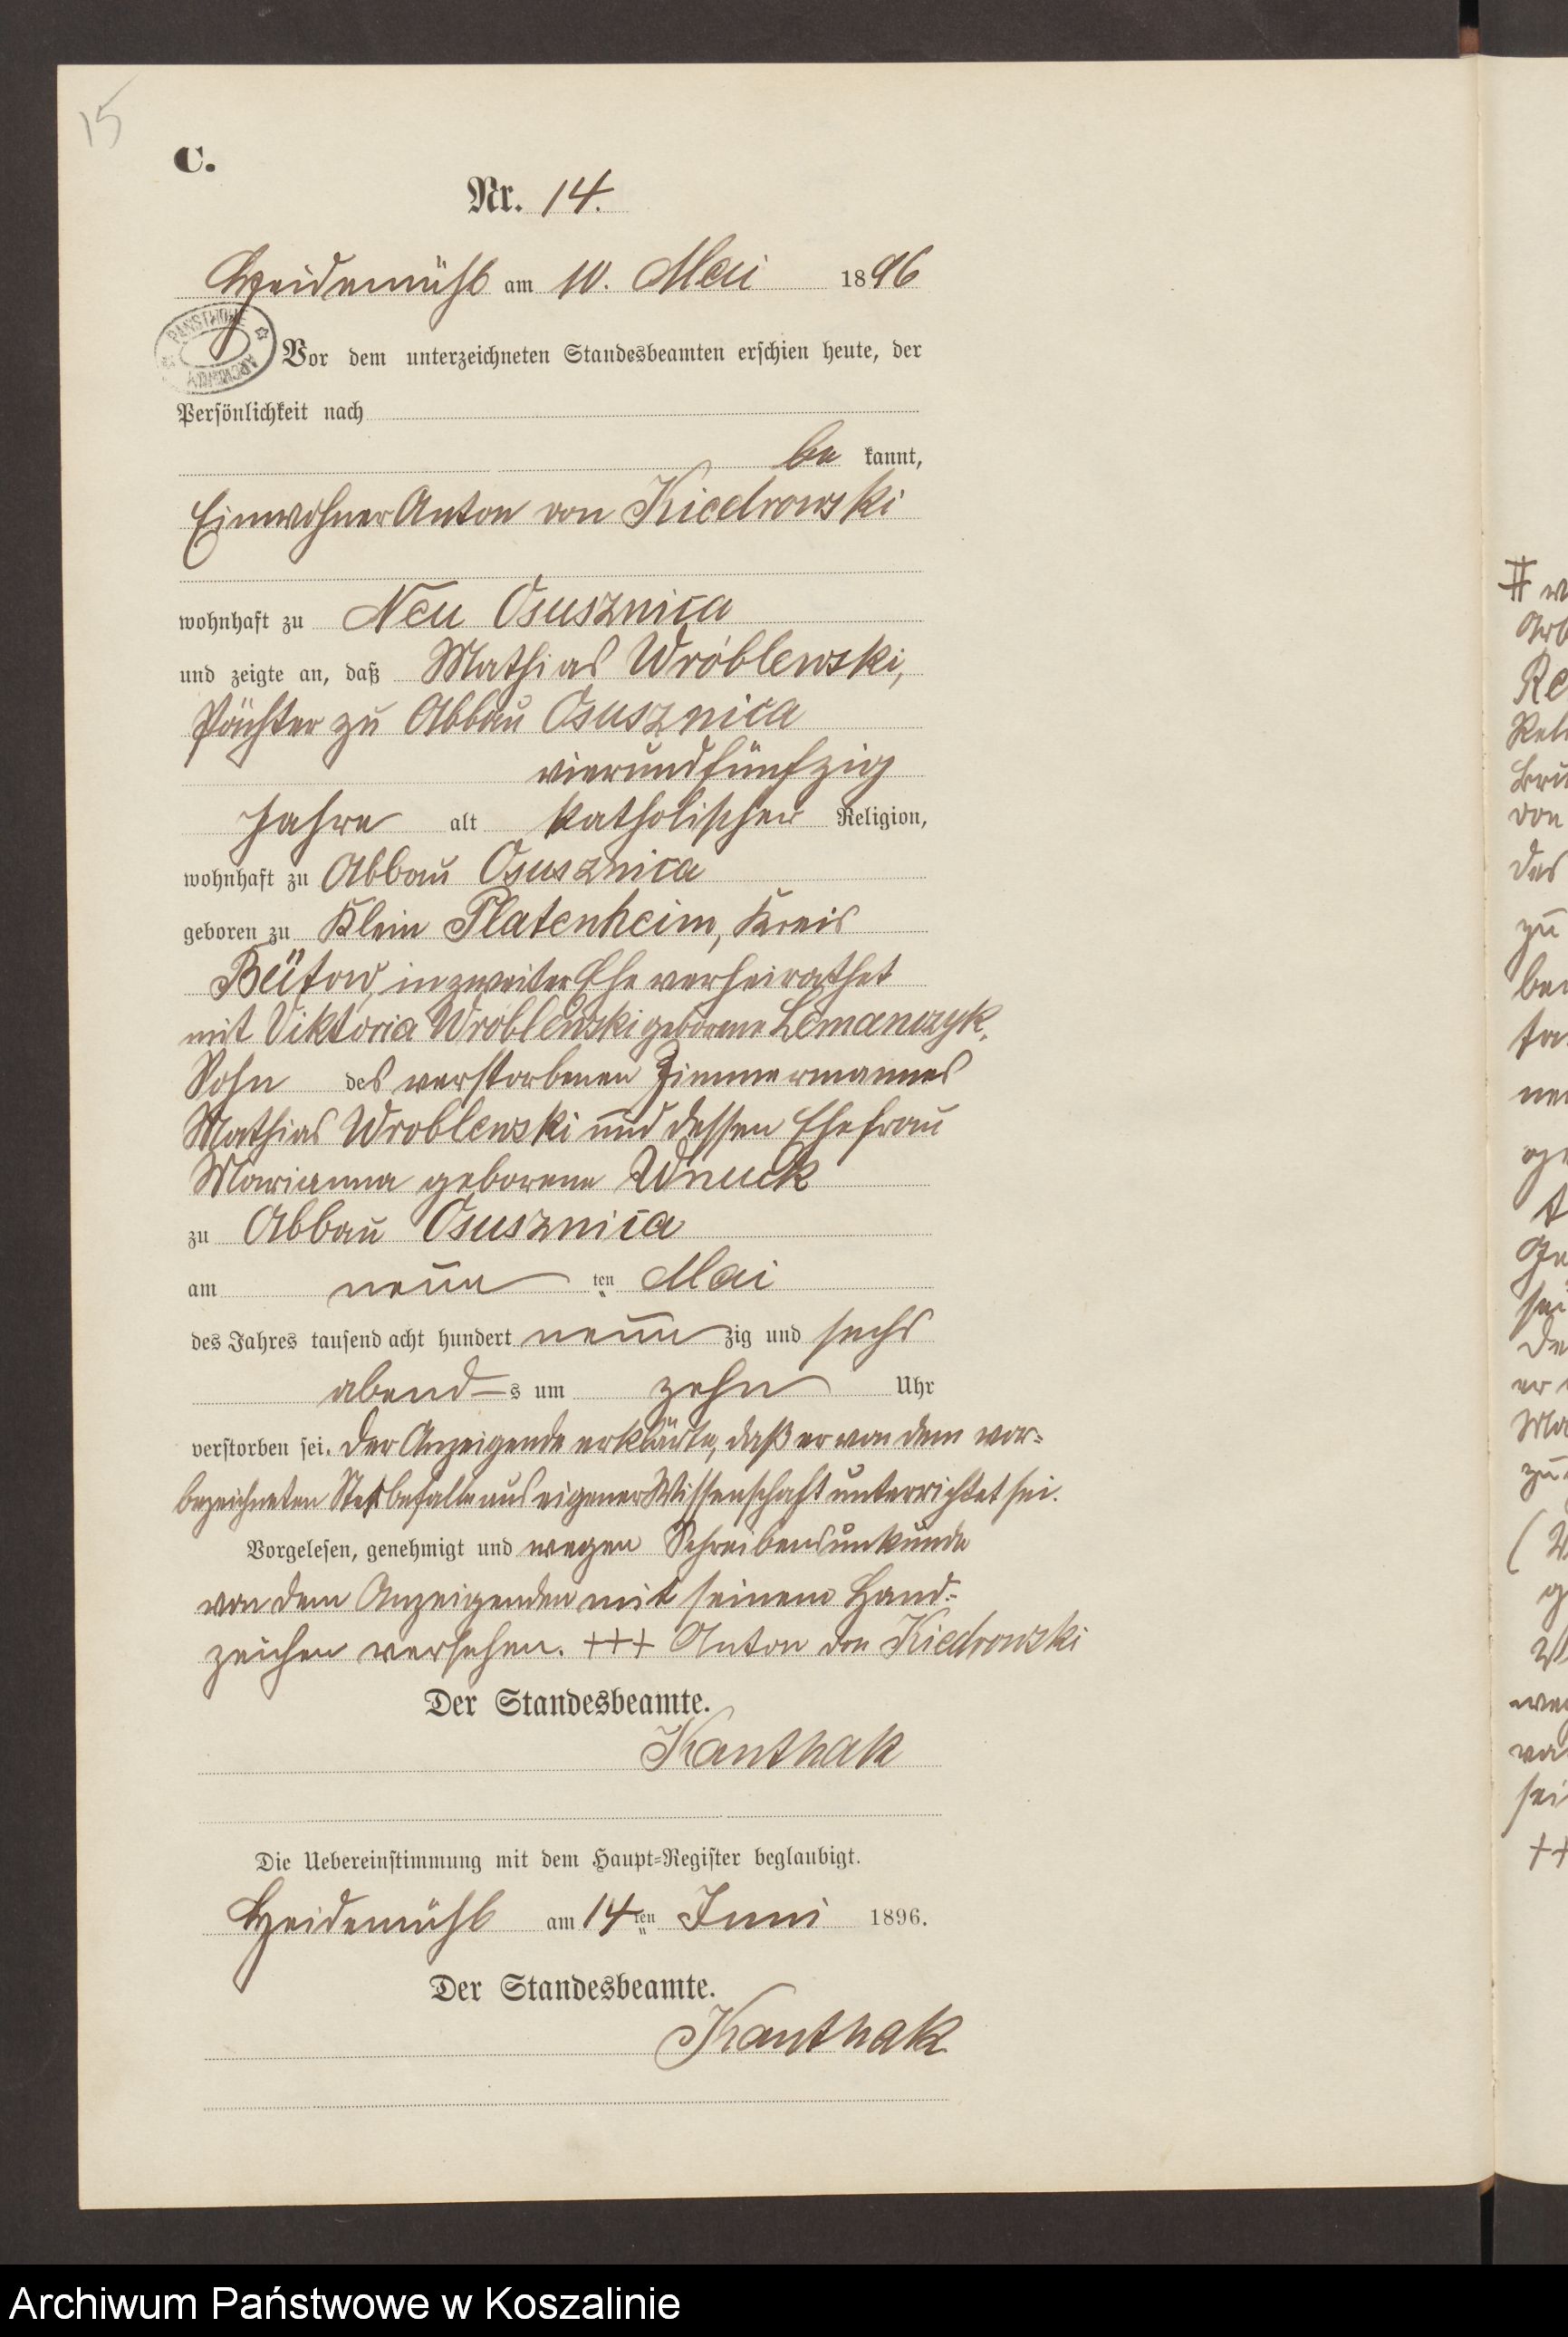 15
C.
Nr. 14.
Heidemühl am 10. Mai 1896
PAŃSTWOWE ARCHIWUM
Vor dem unterzeichneten Standesbeamten erschien heute, der
Persönlichkeit nach
be kannt,
Einwohner Anton von Kiedrowski
wohnhaft zu Neu Osusznica
und zeigte an, daß Mathias Wróblewski,
Pächter zu Abbau Osusznica
vierundfünfzig
Jahre alt katholischer Religion,
wohnhaft zu Abbau Osusznica
geboren zu Klein Platenheim, Kreis
Bütow, in zweiter Ehe verheirathet
mit Viktoria Wróblewski geborene Lemanczyk,
Sohn des verstorbenen Zimmermannes
Mathias Wroblewski und dessen Ehefrau
Marianna geborene Wnuck
zu Abbau Osusznica
am neun ten Mai
des Jahres tausend acht hundert neun zig und sechs
abend s um zehn Uhr
verstorben sei. Der Anzeigende erklärte, daß er von dem vor=
bezeichneten Sterbefalle aus eigener Wissenschaft unterrichtet sei.
Vorgelesen, genehmigt und wegen Schreibensunkunde
von dem Anzeigenden mit seinem Hand=
zeichen versehen. +++ Anton von Kiedrowski
Der Standesbeamte.
Kanthak
Die Uebereinstimmung mit dem Haupt=Register beglaubigt.
Heidemühl am 14 ten Juni 1896.
Der Standesbeamte.
Kanthak
Archiwum Państwowe w Koszalinie